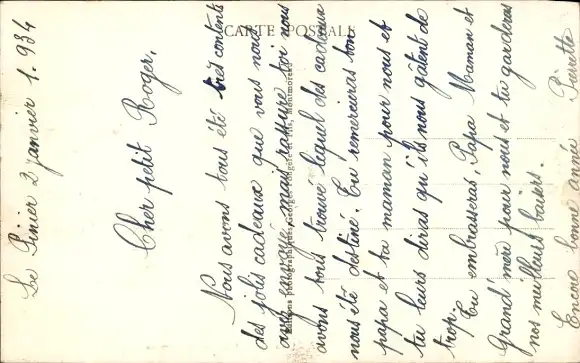 CARTE POSTALE
Le Pinier 2 janvier 1.934
Cher petit Roger,
Nous avons tous été très contents
des jolis cadeaux que vous nous
avez envoyé mais rassure toi nous
avons tous trouvé lequel des cadeaux
nous été destiné. Tu remercieras ton
papa et ta maman pour nous et
tu leurs diras qu'ils nous gâtent de
trop.
Tu embrasseras, Papa Maman et
Grand mère pour nous et tu garderas
nos meilleurs baisers.
Encore bonne année Pierrette